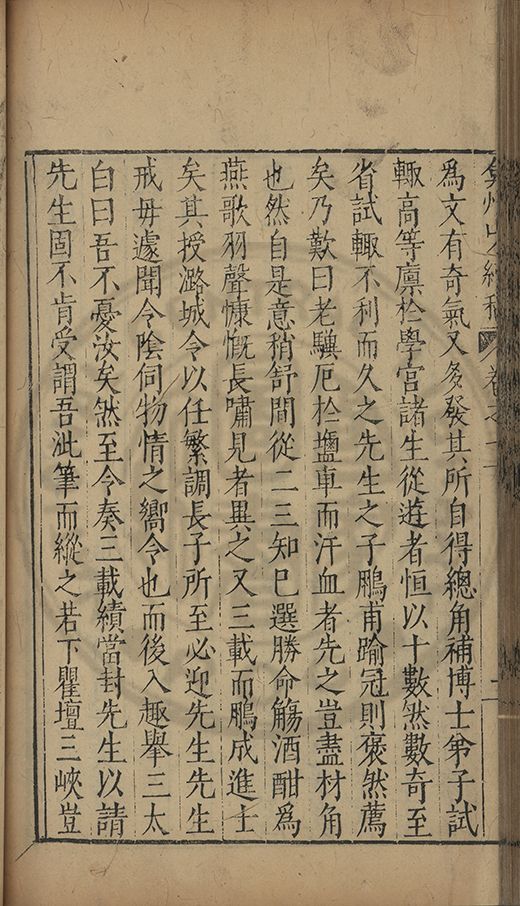 弇州山人續稿 卷之
爲文有奇氣又多發其所自得總角補博士弟子試
輙高等廪於學宮諸生從遊者恒以十數然數奇至
省試輙不利而久之先生之子鵬甫踰冠則褎然薦
矣乃歎曰老驥厄於鹽車而汗血者先之豈盡材角
也然自是意稍舒間從二三知巳選勝命觴酒酣爲
燕歌羽聲慷慨長嘯見者異之又三載而鵬成進士
矣其授潞城令以任繁調長子所至必迎先生先生
戒毋遽聞令陰伺物情之嚮令也而後入趣舉三太
白曰吾不憂汝矣然至令奏三載績當封先生以請
先生固不肯受謂吾泚筆而縱之若下瞿塘三峽豈